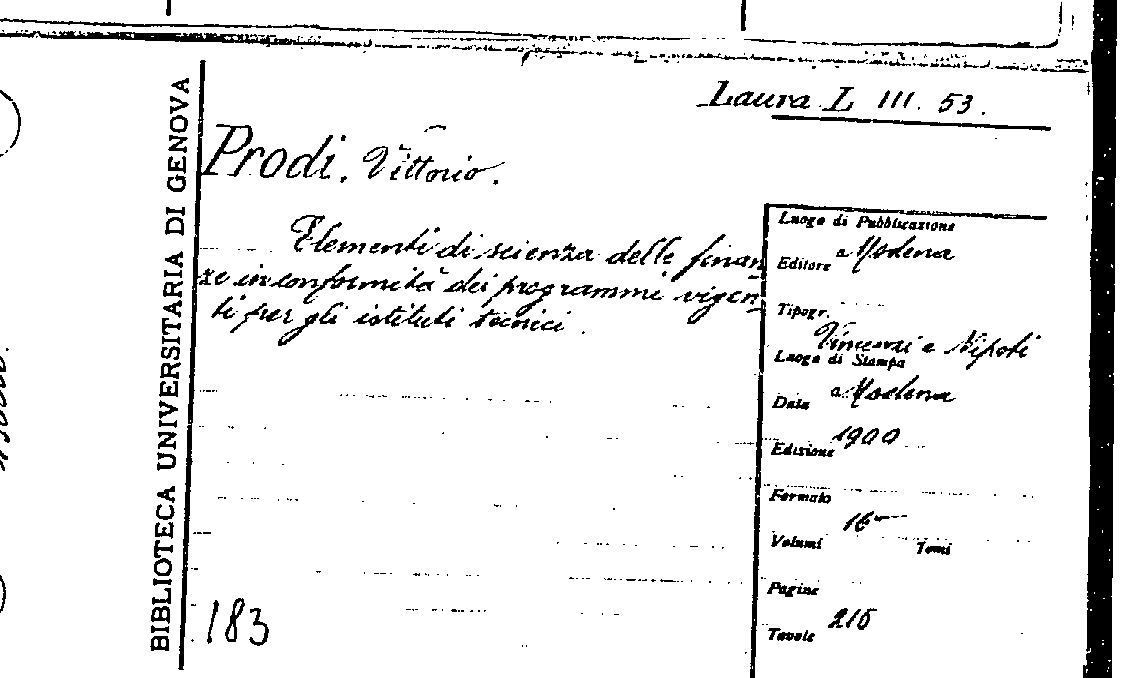 Laura L III. 53.
BIBLIOTECA UNIVERSITARIA DI GENOVA
Prodi, Vittorio.
Elementi di scienza delle finan-
ze in conformità dei programmi vigen-
ti per gli istituti tecnici.
Luogo di Pubblicazione
a Modena
Editore
Tipogr.
Vincenzi e Nipoti
Luogo di Stampa
a Modena
Data
1900
Edizione
Formato
16°
Volumi Tomi
Pagine
216
Tavole
183